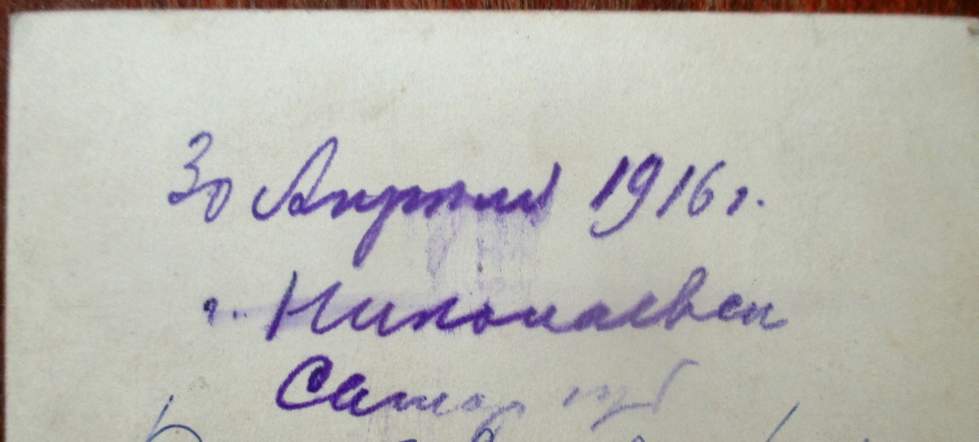 30 Апрѣля 1916 г.
г. Николаевск
Самар губ